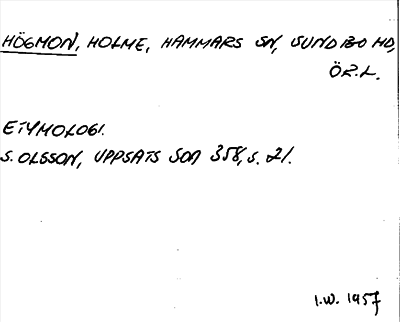 HÖGMON, HOLME, HAMMARS SN, SUNDBO HD,
ÖR.L.
ETYMOLOGI.
S. OLSSON, UPPSATS SOA 358, S. 21.
I.W. 1957